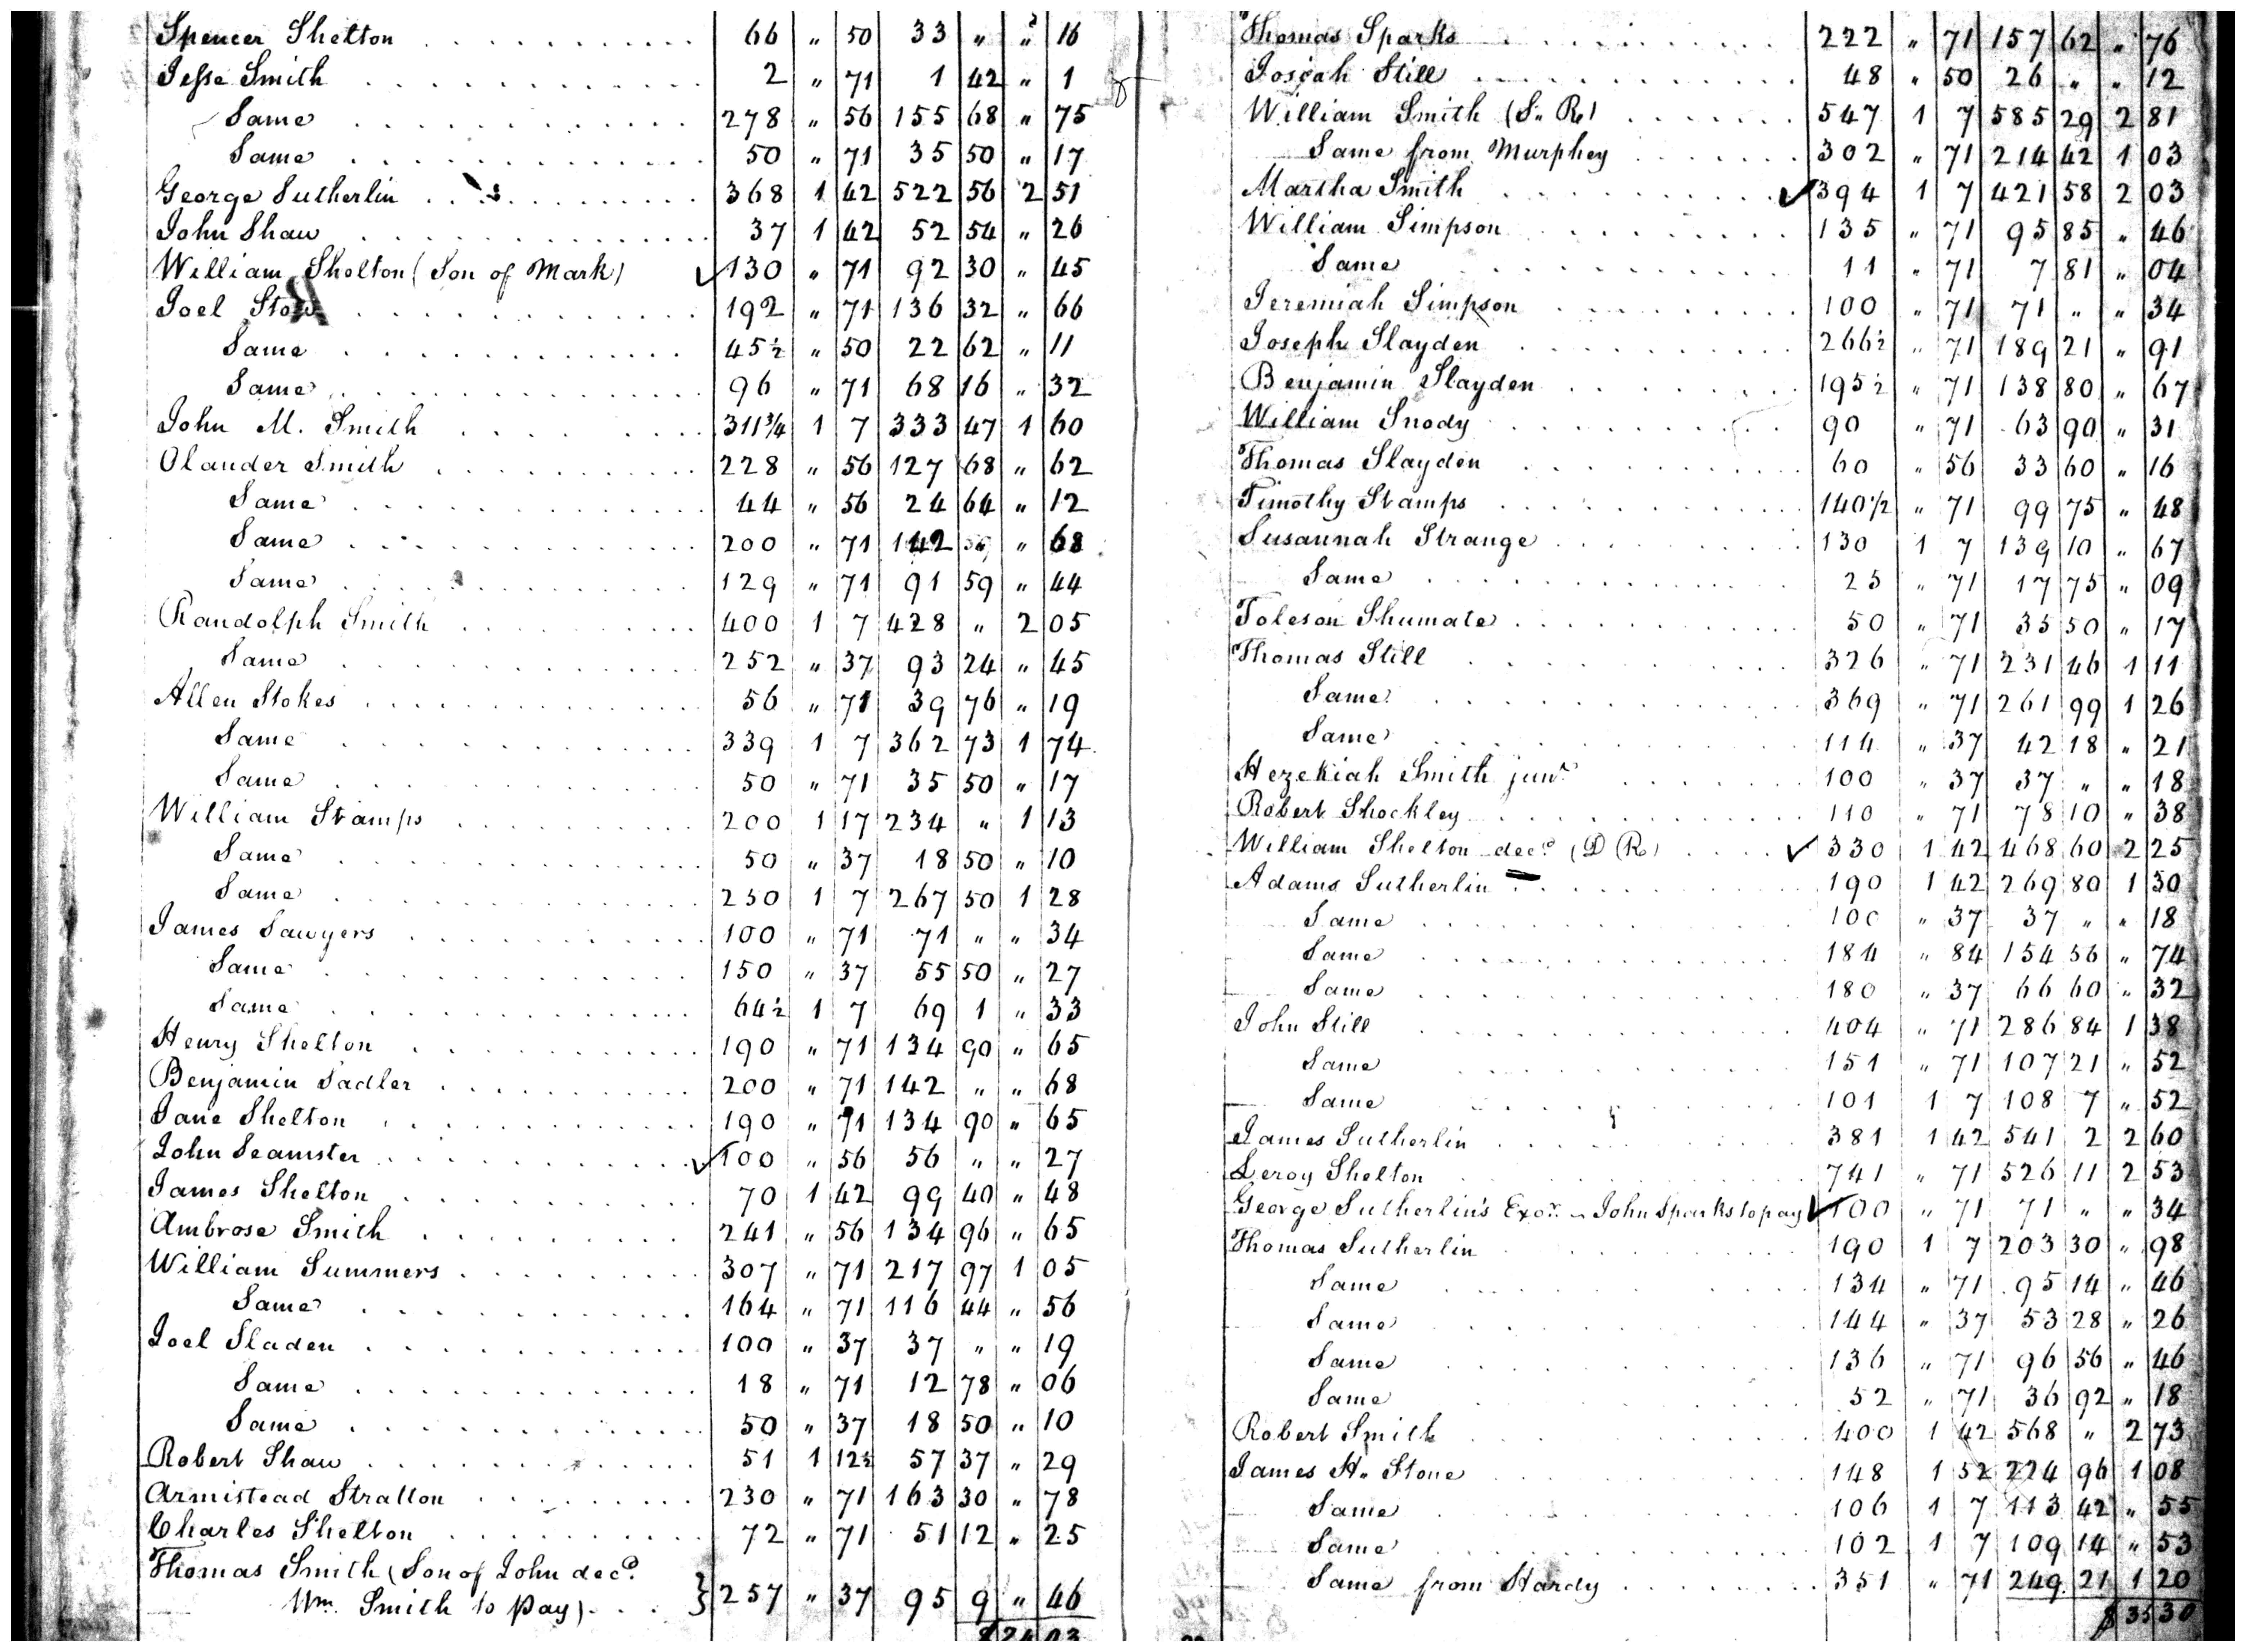 Spencer Shelton 66 " 50 33 " " 16
Jesse Smith 2 " 71 1 42 " 1
Same 278 " 56 155 68 " 75
Same 50 " 71 35 50 " 17
George Sutherlin 368 1 42 522 56 2 51
John Shaw 37 1 42 52 54 " 26
William Shelton (Son of Mark) ✓ 130 " 71 92 30 " 45
Joel Stow 192 " 71 136 32 " 66
Same 45½ " 50 22 62 " 11
Same 96 " 71 68 16 " 32
John M. Smith 311¾ 1 7 333 47 1 60
Olander Smith 228 " 56 127 68 " 62
Same 44 " 56 24 64 " 12
Same 200 " 71 142 " " 68
Same 129 " 71 91 59 " 44
Randolph Smith 400 1 7 428 " 2 05
Same 252 " 37 93 24 " 45
Allen Stokes 56 " 71 39 76 " 19
Same 339 1 7 362 73 1 74
Same 50 " 71 35 50 " 17
William Stamps 200 1 17 234 " 1 13
Same 50 " 37 18 50 " 10
Same 250 1 7 267 50 1 28
James Sawyers 100 " 71 71 " " 34
Same 150 " 37 55 50 " 27
Same 64½ 1 7 69 1 " 33
Henry Shelton 190 " 71 134 90 " 65
Benjamin Sadler 200 " 71 142 " " 68
Jane Shelton 190 " 71 134 90 " 65
John Seamster ✓ 100 " 56 56 " " 27
James Shelton 70 1 42 99 40 " 48
Ambrose Smith 241 " 56 134 96 " 65
William Summers 307 " 71 217 97 1 05
Same 164 " 71 116 44 " 56
Joel Sladen 100 " 37 37 " " 19
Same 18 " 71 12 78 " 06
Same 50 " 37 18 50 " 10
Robert Shaw 51 1 12½ 57 37 " 29
Armistead Stratton 230 " 71 163 30 " 78
Charles Shelton 72 " 71 51 12 " 25
Thomas Smith (Son of John decd.
Wm. Smith to pay) } 257 " 37 95 9 " 46
$24 03
Thomas Sparks 222 " 71 157 62 " 76
Josiah Still 48 " 50 26 " " 12
William Smith (S. R.) 547 1 7 585 29 2 81
Same from Murphey 302 " 71 214 42 1 03
Martha Smith ✓ 394 1 7 421 58 2 03
William Simpson 135 " 71 95 85 " 46
Same 11 " 71 7 81 " 04
Jeremiah Simpson 100 " 71 71 " " 34
Joseph Slayden 266½ " 71 189 21 " 91
Benjamin Slayden 195½ " 71 138 80 " 67
William Snody 90 " 71 63 90 " 31
Thomas Slayden 60 " 56 33 60 " 16
Timothy Stamps 140½ " 71 99 75 " 48
Susannah Strange 130 1 7 139 10 " 67
Same 25 " 71 17 75 " 09
Toleson Shumate 50 " 71 35 50 " 17
Thomas Still 326 " 71 231 46 1 11
Same 369 " 71 261 99 1 26
Same 114 " 37 42 18 " 21
Hezekiah Smith junr. 100 " 37 37 " " 18
Robert Shockley 110 " 71 78 10 " 38
William Shelton decd. (D R.) ✓ 330 1 42 468 60 2 25
Adams Sutherlin 190 1 42 269 80 1 30
Same 100 " 37 37 " " 18
Same 184 " 84 154 56 " 74
Same 180 " 37 66 60 " 32
John Still 404 " 71 286 84 1 38
Same 151 " 71 107 21 " 52
Same 101 1 7 108 7 " 52
James Sutherlin 381 1 42 541 2 2 60
Leroy Shelton 741 " 71 526 11 2 53
George Sutherlin's Exor. - John Sparks to pay ✓ 100 " 71 71 " " 34
Thomas Sutherlin 190 1 7 203 30 " 98
Same 134 " 71 95 14 " 46
Same 144 " 37 53 28 " 26
Same 136 " 71 96 56 " 46
Same 52 " 71 36 92 " 18
Robert Smith 400 1 42 568 " 2 73
James H. Stone 148 1 52 224 96 1 08
Same 106 1 7 113 42 " 55
Same 102 1 7 109 14 " 53
Same from Hardy 351 " 71 249 21 1 20
$35 30